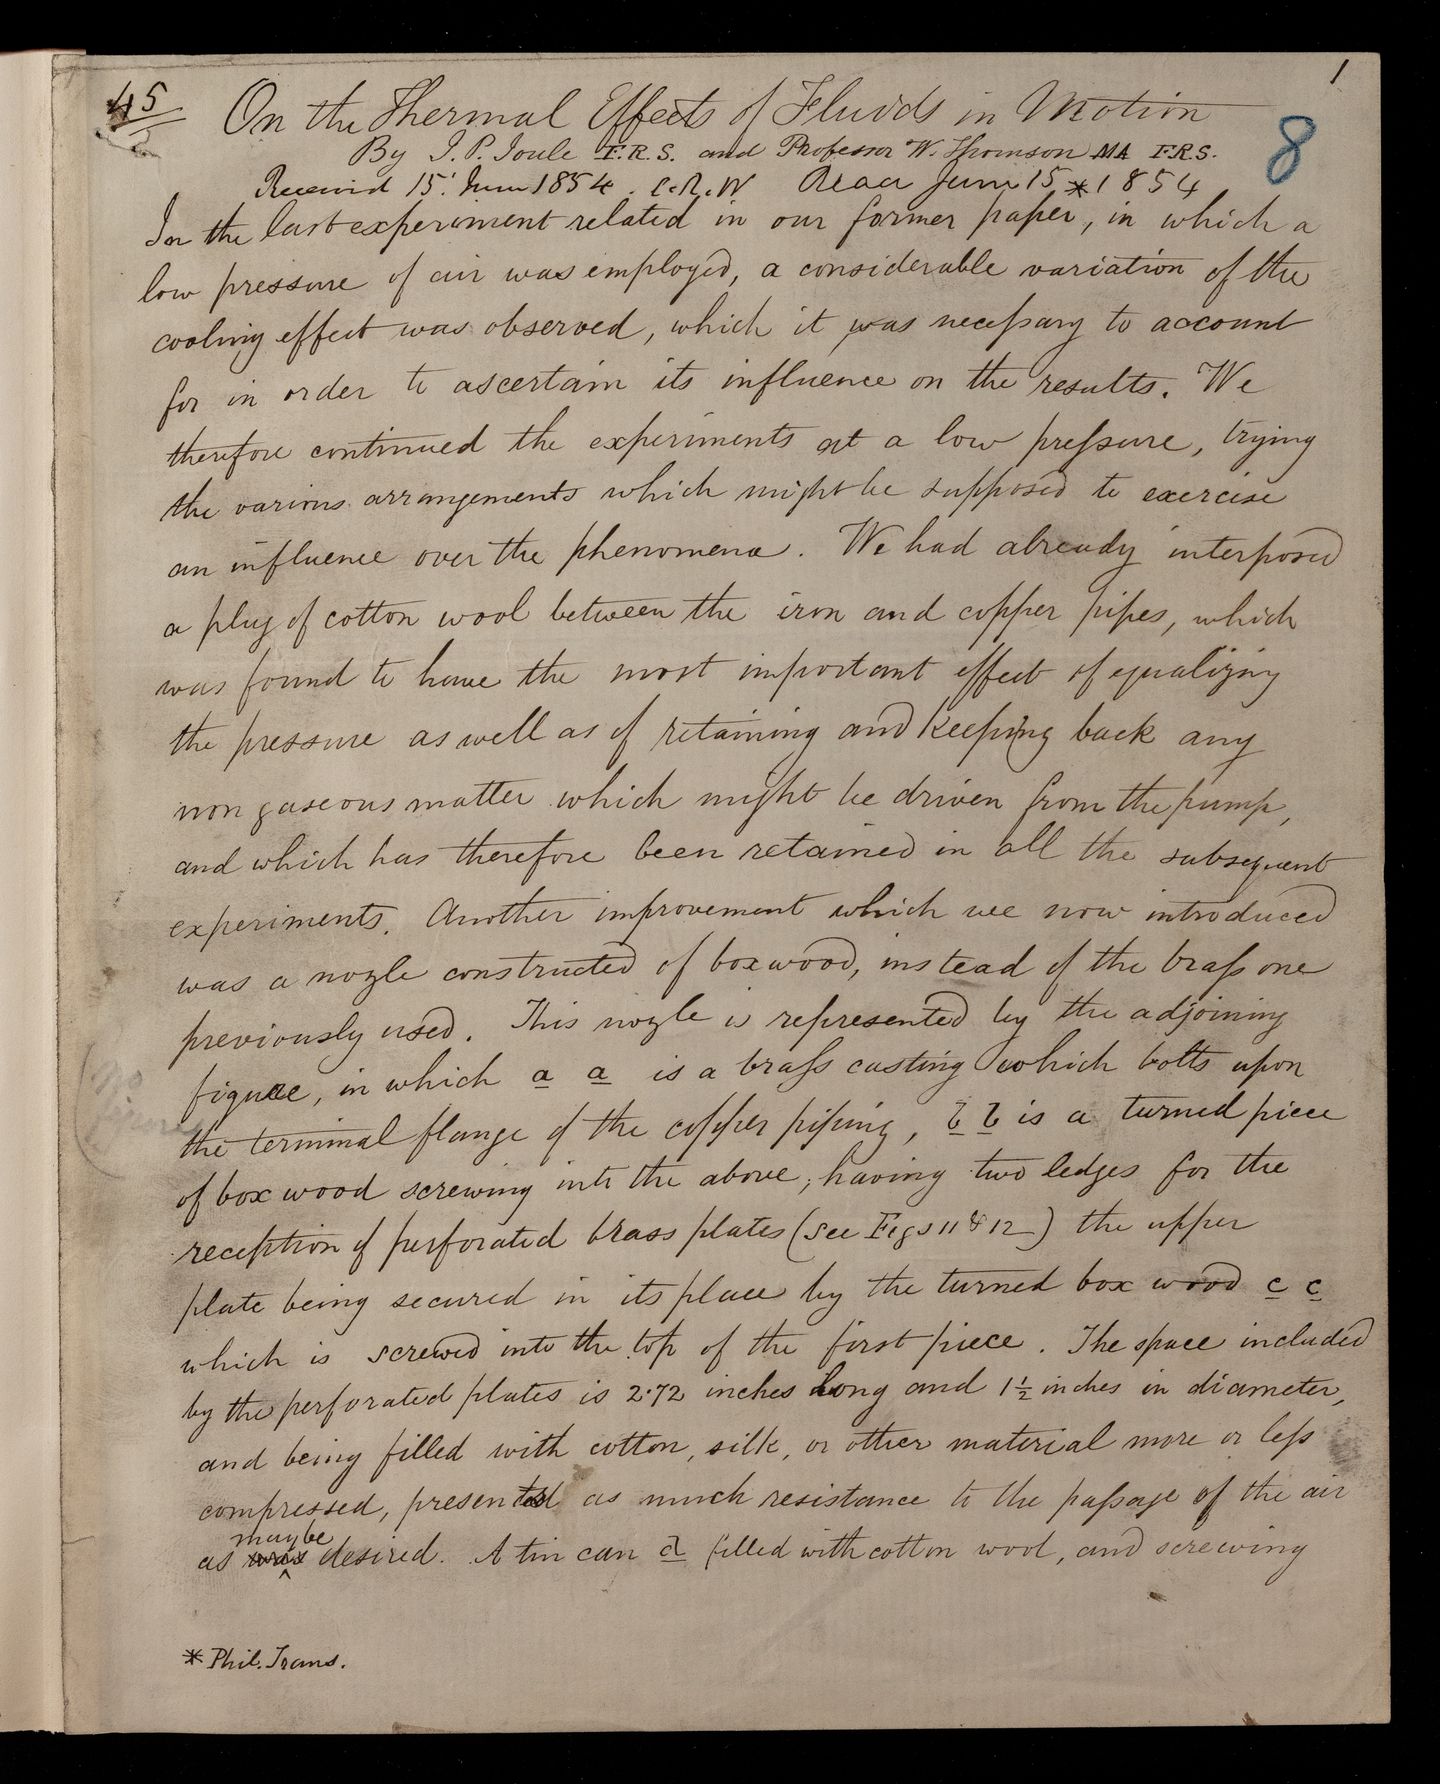 45
1
8
On the Thermal Effects of Fluids in Motion
By J. P. Joule F.R.S. and Professor W. Thomson MA F.R.S.
Received 15. June 1854. C.R.W Read June 15 1854
In the last experiment related in our former paper*, in which a
low pressure of air was employed, a considerable variation of the
cooling effect was observed, which it was necessary to account
for in order to ascertain its influence on the results. We
therefore continued the experiments at a low pressure, trying
the various arrangements which might be supposed to exercise
an influence over the phenomena. We had already interposed
a plug of cotton wool between the iron and copper pipes, which
was found to have the most important effect of equalizing
the pressure as well as of retaining and keeping back any
non gaseous matter which might be driven from the pump,
and which has therefore been retained in all the subsequent
experiments. Another improvement which we now introduced
was a nozle constructed of boxwood, instead of the brass one
previously used. This nozle is represented by the adjoining
figure, in which a a is a brass casting which bolts upon
the terminal flange of the copper piping, b b is a turned piece
of box wood screwing into the above, having two ledges for the
reception of perforated brass plates (see Figs 11 & 12) the upper
plate being secured in its place by the turned box wood c c
which is screwed into the top of the first piece. The space included
by the perforated plates is 2.72 inches long and 1½ inches in diameter,
and being filled with cotton, silk, or other material more or less
compressed, presented as much resistance to the passage of the air
may be
as was desired. A tin can d filled with cotton wool, and screwing
* Phil. Trans.